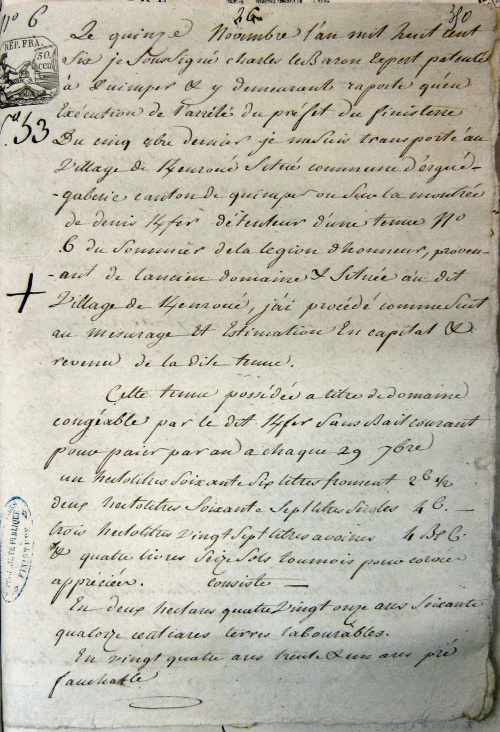 n° 6
350
REP. FRA.
50
cen
n° 53
Le quinze Novembre l'an mil huit cent
six je Soussigné charles leBaron Expert patenté
à Quimper & y demeurant raporte qu'en
Exécution de l'arrêté du préfet du finisterre
Du cinq 8bre dernier je me suis transporté au
Village de Kenroué Situé commune d'ergué-
-gaberic canton de quimper ou Sur la montrée
de denis détenteur d'une tenue N°
6 du Sommier de la legion d'honneur, proven-
-ant de l'ancien domaine & Située au dit
Village de Kenroué, j'ai procédé comme Suit
au mesurage Et Estimation En capital &
revenu de la dite tenue.
Cette tenue possédée a titre de domaine
congéable par le dit Sans Bail courant
pour paier par an a chaque 29 7bre
un hectolitres Soixante Six litres froment 2
deux hectolitres Soixante Sept litres Seigles 4 C.
trois hectolitres Vingt Sept litres avoines 4
& quatre livres Seize Sols tournois pour corvée
appréciée. consiste —
En deux hectares quatre Vingt onze ares Soixante
quatorze centiares terres labourables.
En Vingt quatre ares trente & un ares pré
fauchable
FINISTERE